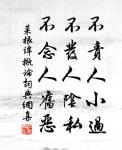 不責人小過
不發人陰私
不念人舊惡
菜根譚概論詞典網